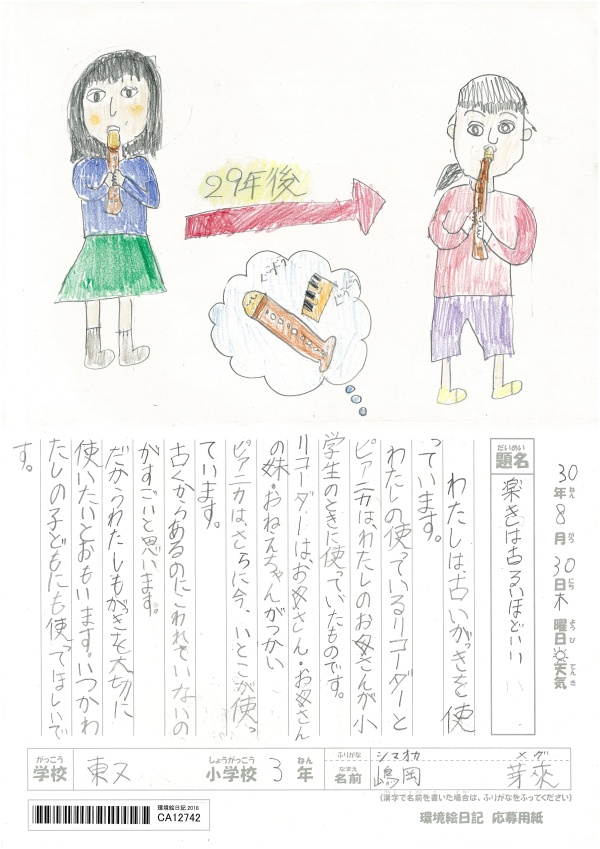 29年後
30年8月30日木曜日天気
ねん
がつ
にち
ようび
てんき
だいめい
題名
楽きは古るいほどいい
わたしは、古いがっきを使
っています。
わたしの使っているリコーダーと
ピアニカは、わたしのお父さんが小
学生のときに使っていたものです。
リコーダーは、お父さん・お父さん
の妹・おねえちゃんがつかい
ピアニカは、さらに今、いとこが使っ
ています。
古くからあるのにこわれていないの
がすごいと思います。
だからわたしもがっきを大切に
使いたいとおもいます。いつかわ
たしの子どもにも使ってほしいで
す。
がっこう
学校
東又
しょうがっこう
小学校
3
ねん
年
ふりがな
シマオカ
メグ
なまえ
名前
嶋岡
(漢字で名前を書いた場合は、ふりがなをふってください)
環境絵日記 2018
CA12742
環境絵日記 応募用紙